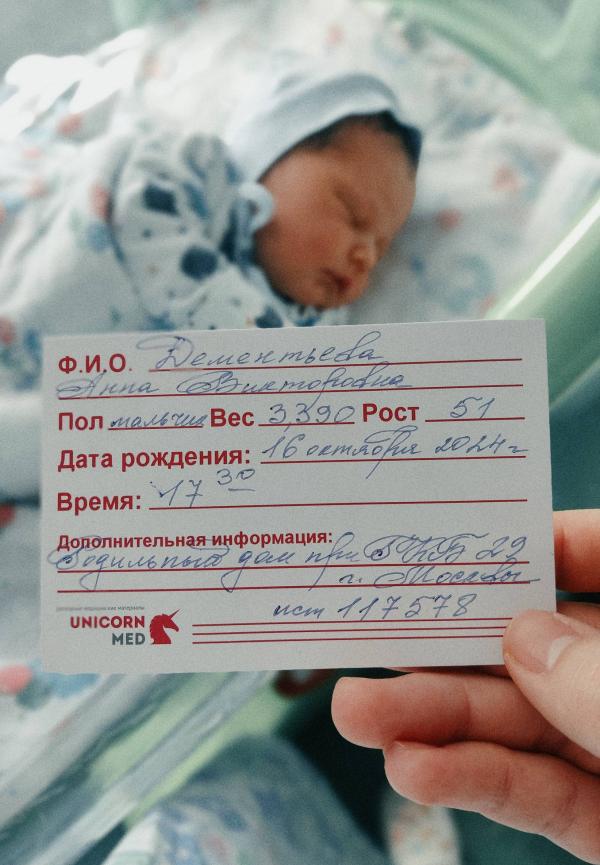 Ф.И.О. Дементьева
Анна Викторовна
Пол мальчик Вес 3,390 Рост 51
Дата рождения: 16 октября 2024 г
Время: 17 30
Дополнительная информация:
Родильный дом при ГКБ 29
г. Москвы
ист 117578
UNICORN
MED